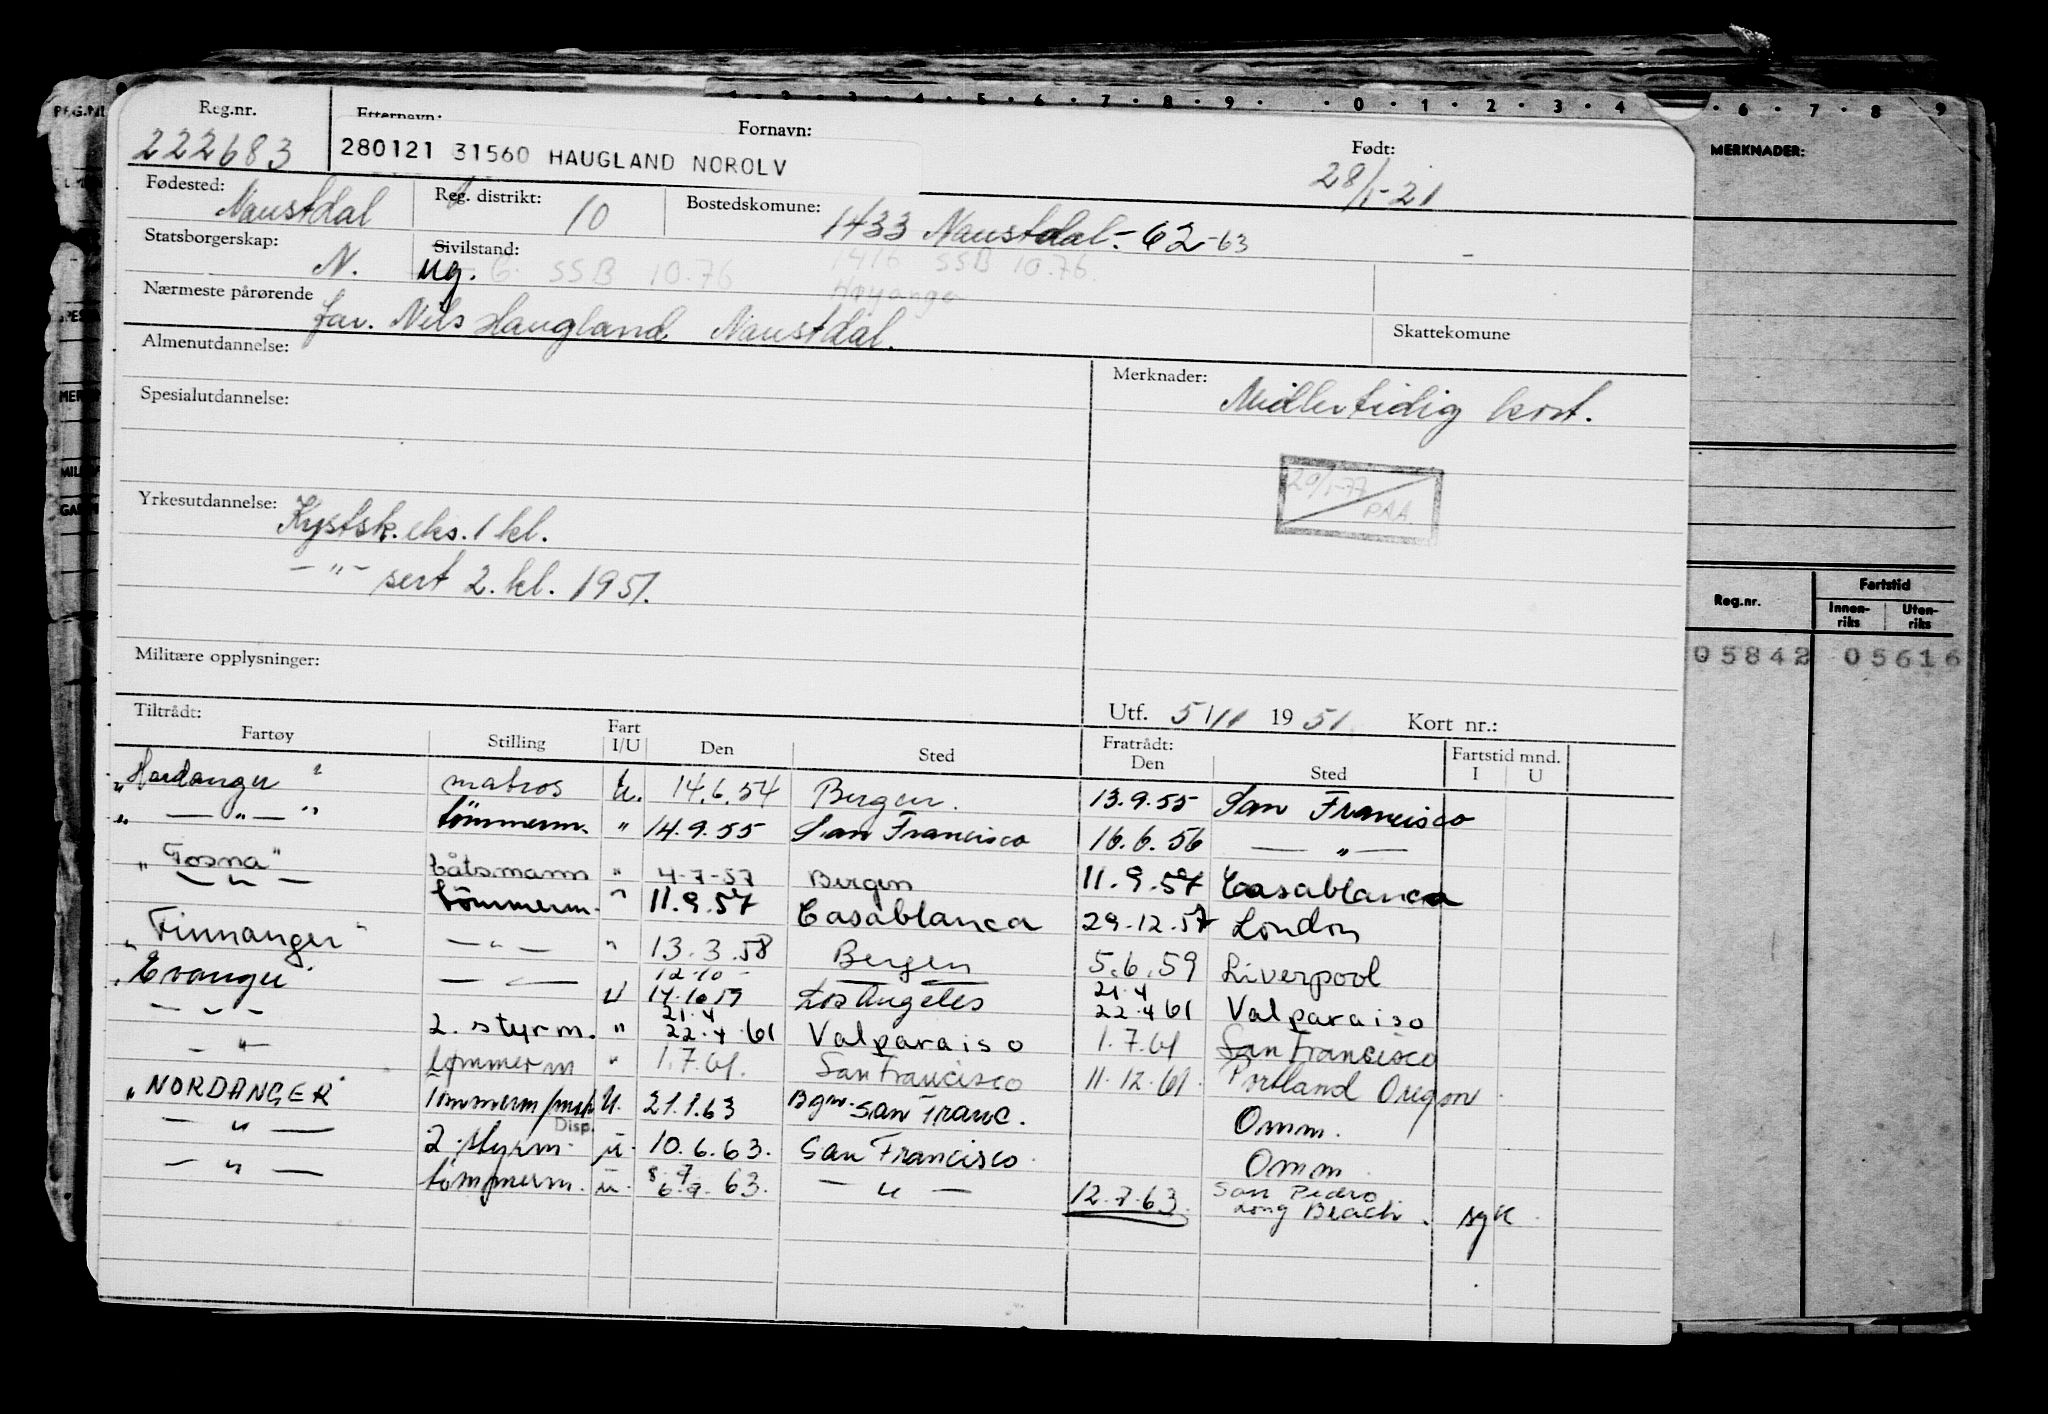 Reg.nr.
222683
Etternavn:
Fornavn:
280121 31560 HAUGLAND NOROLV
Født:
28/1-21
Fødested:
Naustdal
Reg. distrikt:
10
Bostedskomune:
1433 Naustdal.-62-63
1416 SSB 10.76.
Høyanger
Statsborgerskap:
N.
Sivilstand:
ug. G. SSB 10.76
Nærmeste pårørende
far. Nils Haugland Naustdal.
Skattekomune
Almenutdannelse:
Spesialutdannelse:
Merknader:
Midlertidig kort.
20/1-77
PAA.
Yrkesutdannelse:
Kystsk. eks. 1 kl.
-"- sert 2. kl. 1951.
Militære opplysninger:
Utf. 5/11 1951. Kort nr.:
Tiltrådt:
Fartøy Stilling Fart I/U Den Sted Fratrådt: Den Sted Fartstid mnd. I U
"Hardanger" matros U. 14.6.54 Bergen. 13.9.55 San Francisco
" — " — " tömmerm. " 14.9.55 San Francisco 16.6.56 — " —
"Fosna" båtsmann " 4-7-57 Bergen 11.9.57 Casablanca
— " — tömmerm. " 11.9.57 Casablanca 29.12.57 London
"Finnanger" — " — " 13.3.58 Bergen 5.6.59 Liverpool
"Evanger" — " — U 12.10 - 14.10.59 Los Angeles 21.4 22.4 61 Valparaiso
— " — 2. styrm. " 21.4 22.4.61 Valparaiso 1.7.61 San Francisco
— " — tømmerm " 1.7.61. San Francisco 11.12.61. Portland Oregon.
"NORDANGER" Tömmerm U. 21.1.63 Bgn. San Franc. Omm.
— " — 2. styrm. Disp. u. 10.6.63. San Francisco. Omm
— " — tömmerm. u. 63. — " — 12.7.63. San Pedro Long Beach. syk.
MERKNADER:
Reg.nr.
Fartstid
Innen-riks
Uten-riks
05842 05616